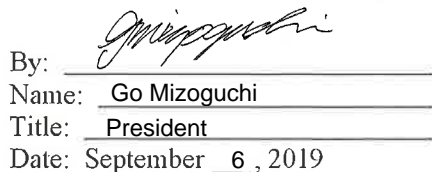 By: gmizoguchi
Name: Go Mizoguchi
Title: President
Date: September 6, 2019